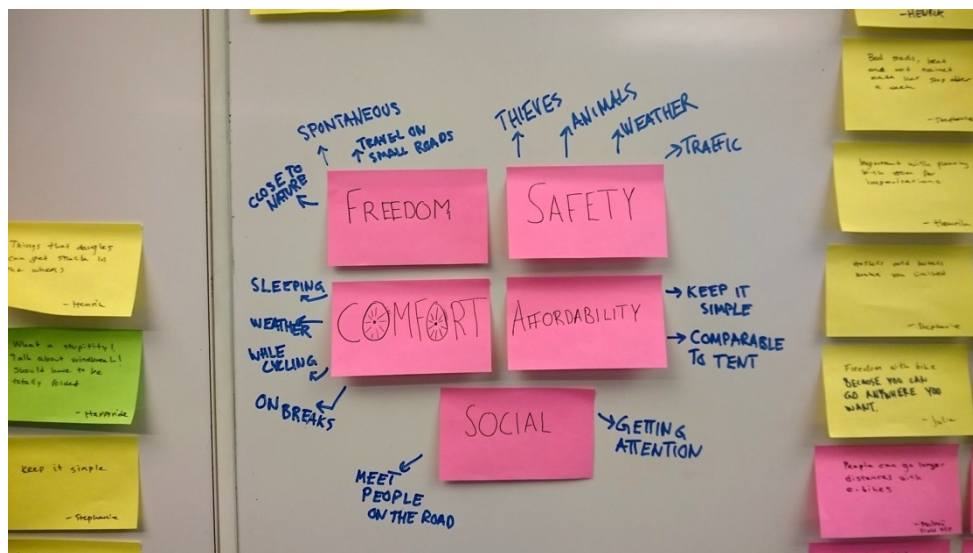 Things that dangles
can get stuck in
the wheels
- Henrik
What a stupitity!
Talk about windbreak!
Should have to be
totally folded
- Happyride
keep it simple
- Stephanie
SPONTANEOUS
TRAVEL ON
SMALL ROADS
CLOSE TO
NATURE
FREEDOM
THIEVES
ANIMALS
WEATHER
TRAFFIC
SAFETY
SLEEPING
WEATHER
WHILE
CYCLING
ON BREAKS
COMFORT
AFFORDABILITY
KEEP IT
SIMPLE
COMPARABLE
TO TENT
SOCIAL
GETTING
ATTENTION
MEET
PEOPLE
ON THE ROAD
- HENRIK
Bad roads, heat
and not trained
made her stop after
a week
- Stephanie
Important with planning
both them for
improvisations
- Henrik
and hotels
make you
- Stephanie
Freedom with bike
BECAUSE YOU CAN
GO ANYWHERE YOU
WANT.
- Julia
People can go longer
distances with
e-bikes